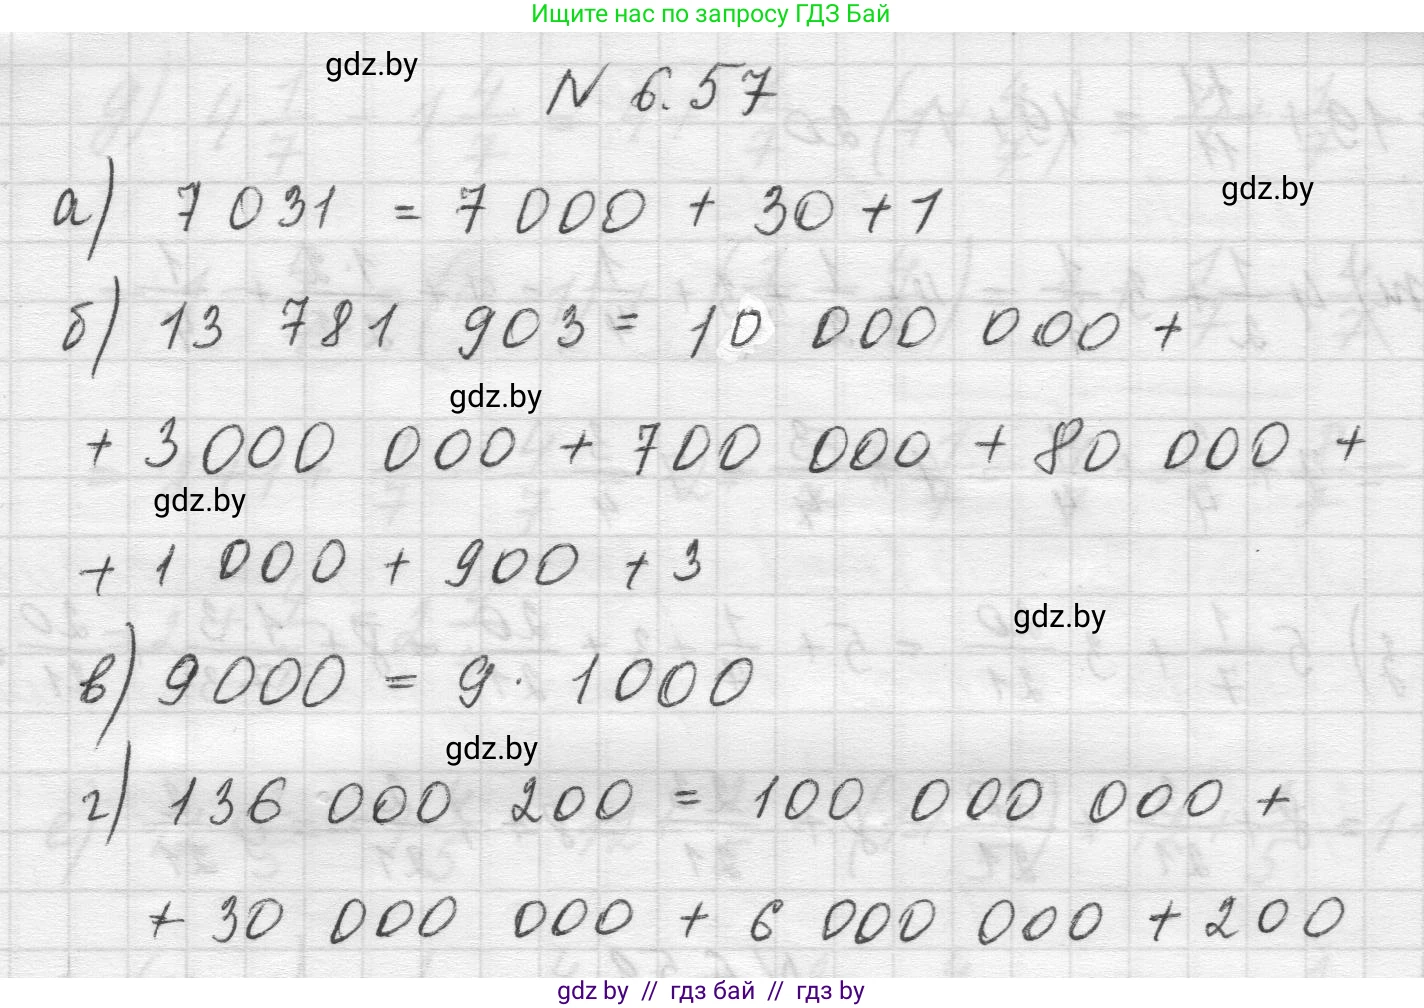 Ищите нас по запросу ГДЗ Бай
gdz.by
N 6.57
а) 7 031 = 7 000 + 30 + 1
gdz.by
б) 13 781 903 = 10 000 000 +
gdz.by
+ 3 000 000 + 700 000 + 80 000 +
gdz.by
+ 1 000 + 900 + 3
gdz.by
в) 9000 = 9 · 1000
gdz.by
г) 136 000 200 = 100 000 000 +
+ 30 000 000 + 6 000 000 + 200
gdz by // гдз бай // гдз by